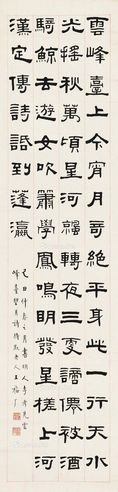 雲峰臺上今宵月奇絶平身此一行天水
光搖秋萬頃星河轉夜三更誰儂被酒
騎鯨去遊女吹簫學鳳鳴明發星槎上河
漢定傳詩話到蓬瀛
仲春之月書明人李
峰臺望月詩持默老人王福厂